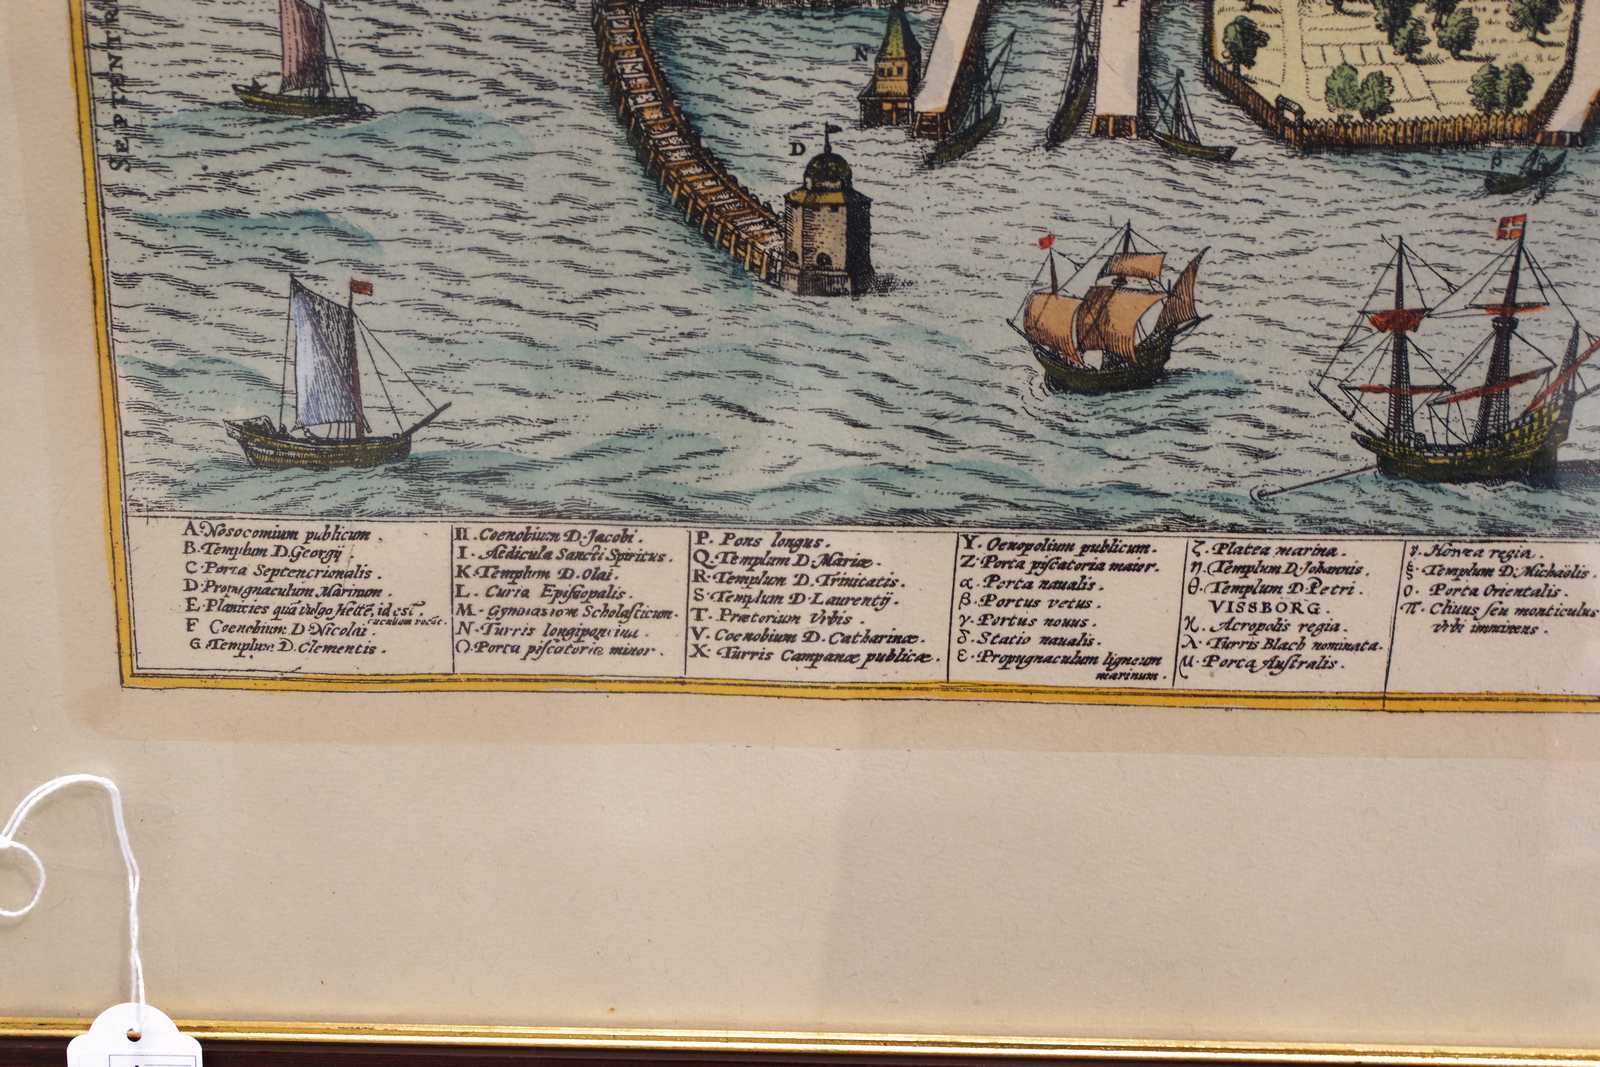 SEPTENTR
N
D
P
β
A. Nosocomium publicum.
B. Templum D. Georgij.
C. Porta Septencrionalis.
D. Propugnaculum Marinum.
E. Planicies quã vulgo Hette, id est
rucuium vocãt.
F Coenobium D Nicolai
G. Templum D. Clementis.
H. Coenobium D. Jacobi.
I. Aedicula Sancti Spiritus.
K. Templum D. Olai.
L. Curia Episcopalis.
M. Gymnasiom Scholasticum.
N. Turris
O. Porta piscatoria minor.
P. Pons longus.
Q. Templum D. Mariæ.
R. Templum D. Trinitatis.
S. Templum D. Laurentij.
T. Prætorium Vrbis.
V. Coenobium D. Catharinæ.
X. Turris Campanæ publicæ.
Y. Oenopolium publicum.
Z. Porta piscatoria maior.
α. Porta naualis.
β. Portus vetus.
γ. Portus nouus.
δ. Statio naualis.
ε. Propugnaculum ligneum
marinum.
ζ. Platea marina.
η. Templum D. Johannis.
θ. Templum D. Petri.
VISSBORG.
κ. Acropolis regia.
λ. Turris Blach nominata.
μ. Porta Australis.
ν. Horrea regia.
ξ. Templum D. Michaölis.
ο. Porta Orientalis.
π. Cliuus seu monticulus
Vrbi imminens.